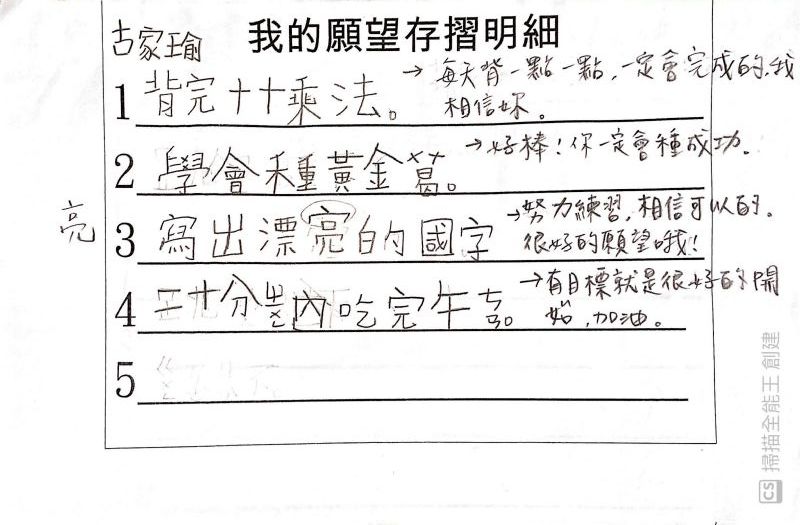 古家瑜 我的願望存摺明細
1 背完十十乘法。 →每天背一點一點,一定會完成的,我
相信妳。
2 學會種黃金葛。 →好棒!你一定會種成功。
亮
3 寫出漂亮的國字 →努力練習,相信可以的。
很好的願望哦!
4 二十分ㄓㄥ內吃完午ㄘㄢ。 →有目標就是很好的開
始,加油。
5
CS 掃描全能王 創建